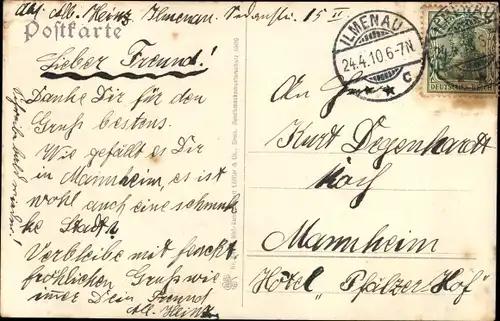 Abs. Alb. Heinz, Ilmenau, Sedanstr. 15 II.
Postkarte
Lieber Freund!
Danke Dir für den
Gruss bestens.
Wie gefällt es Dir
in Mannheim, es ist
wohl auch eine schmuk-
ke Stadt.
Verbleibe mit
fröhlichen Gruss wie
imer Dein Freund
Alb. Heinz
Schreibe bald wieder!
ILMENAU
24.4.10.6-7N
* * C
ILMENAU
DEUTSCHES REICH
An
Kurt Degenhardt
Koch
Mannheim
Hotel "Pfälzer Hof"